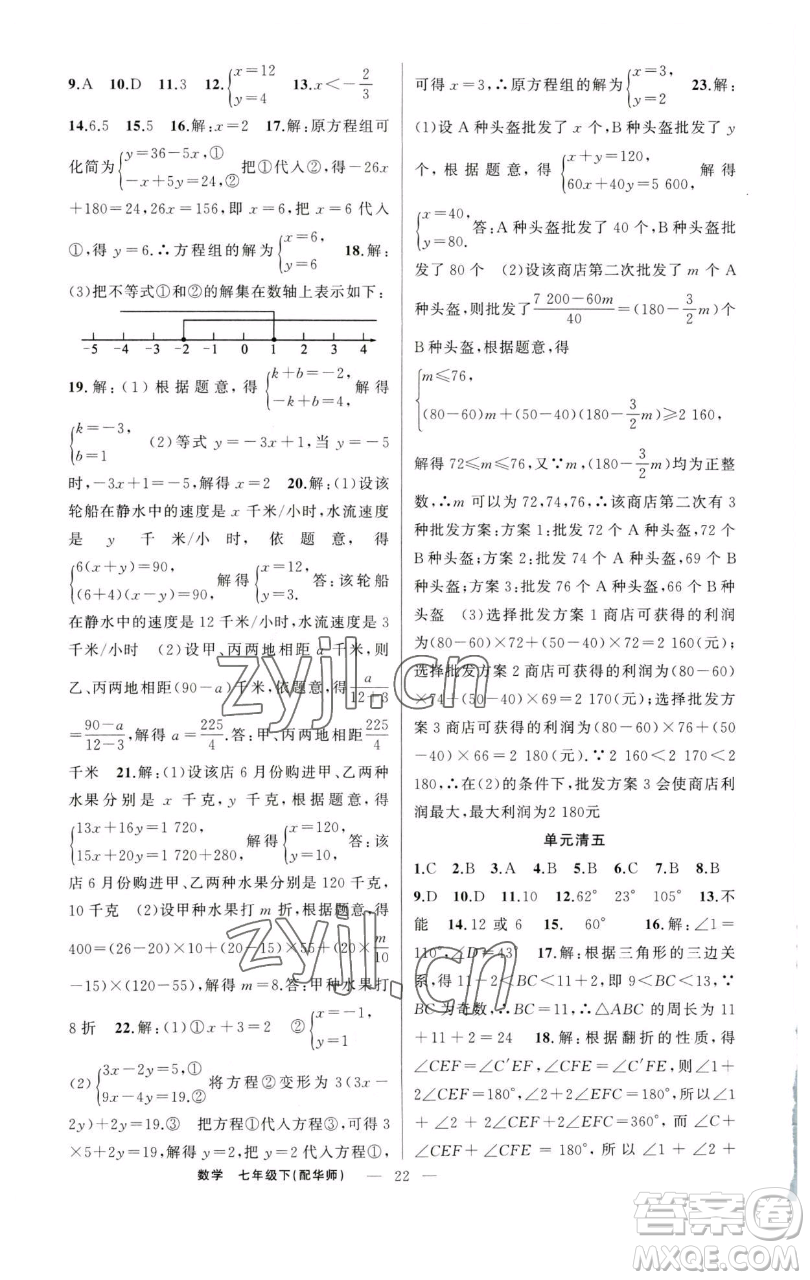 9.A 10.D 11.3 12.{x=12 y=4 13.x<-2/3
14.6.5 15.5 16.解:x=2 17.解:原方程组可
化简为{y=36-5x,① -x+5y=24,② 把①代入②,得-26x
+180=24,26x=156,即 x=6 把 x=6 代入
①,得 y=6.∴方程组的解为{x=6, y=6 18.解:
(3)把不等式①和②的解集在数轴上表示如下:
-5 -4 -3 -2 -1 0 1 2 3 4
19.解:(1)根据题意,得{k+b=-2, -k+b=4, 解得
{k=-3, b=1 (2)等式 y=-3x+1,当 y=-5
时,-3x+1=-5,解得 x=2 20.解:(1)设该
轮船在静水中的速度是 x 千米/小时,水流速度
是 y 千米/小时,依题意,得
{6(x+y)=90, (6+4)(x-y)=90, 解得{x=12, y=3. 答:该轮船
在静水中的速度是 12 千米/小时,水流速度是 3
千米/小时 (2)设甲、丙两地相距 a 千米,则
乙、丙两地相距(90-a)千米,依题意,得a/(12+3)
=(90-a)/(12-3),解得 a=225/4.答:甲、丙两地相距225/4
千米 21.解:(1)设该店 6 月份购进甲、乙两种
水果分别是 x 千克,y 千克,根据题意,得
{13x+16y=1 720, 15x+20y=2 000, 解得{x=120, y=10 答:该
店 6 月份购进甲、乙两种水果分别是 120 千克,
10 千克 (2)设甲种水果打 m 折,根据题意,得
400=(26-20)×10+(20-15)×55+(20×m/10
-15)×(120-55),解得 m=8.答:甲种水果打
8 折 22.解:(1)①x+3=2 ②{x=-1, y=1
(2){3x-2y=5,① 9x-4y=19.② 将方程②变形为 3(3x-
2y)+2y=19.③ 把方程①代入方程③,可得 3
×5+2y=19,∴y=2,把 y=2 代入方程①,
数学 七年级下(配华师) — 22 —
可得 x=3,∴原方程组的解为{x=3, y=2 23.解:
(1)设 A 种头盔批发了 x 个,B 种头盔批发了 y
个,根据题意,得{x+y=120, 60x+40y=5 600, 解得
{x=40, y=80. 答:A 种头盔批发了 40 个,B 种头盔批
发了 80 个 (2)设该商店第二次批发了 m 个 A
种头盔,则批发了(7 200-60m)/40=(180-3/2 m)个
B 种头盔,根据题意,得
{m≤76, (80-60)m+(50-40)(180-3/2 m)≥2 160,
解得 72≤m≤76,又∵m,(180-3/2 m)均为正整
数,∴m 可以为 72,74,76,∴该商店第二次有 3
种批发方案:方案 1:批发 72 个 A 种头盔,72 个
B 种头盔;方案 2:批发 74 个 A 种头盔,69 个 B
种头盔;方案 3:批发 76 个 A 种头盔,66 个 B 种
头盔 (3)选择批发方案 1 商店可获得的利润
为(80-60)×72+(50-40)×72=2 160(元);
选择批发方案 2 商店可获得的利润为(80-60)
×74+(50-40)×69=2 170(元);选择批发
方案 3 商店可获得的利润为(80-60)×76+(50
-40)×66=2 180(元).∵2 160<2 170<2
180,∴在(2)的条件下,批发方案 3 会使商店利
润最大,最大利润为2 180元
单元清五
1.C 2.B 3.A 4.B 5.B 6.C 7.B 8.B
9.D 10.D 11.10 12.62° 23° 105° 13.不
能 14.12 或 6 15. 60° 16.解:∠1=
110°,∠D=43° 17.解:根据三角形的三边关
系,得 11-2<BC<11+2,即 9<BC<13,∵
BC 为奇数,∴BC=11,∴△ABC 的周长为 11
+11+2=24 18.解:根据翻折的性质,得
∠CEF=∠C′EF,∠CFE=∠C′FE,则∠1+
2∠CEF=180°,∠2+2∠EFC=180°,所以∠1
+∠2+2∠CEF+2∠EFC=360°,而∠C+
∠CEF+∠CFE=180°,所以∠1+∠2=
zyjl.cn
zyjl.cn
答案卷
MXQE.COM